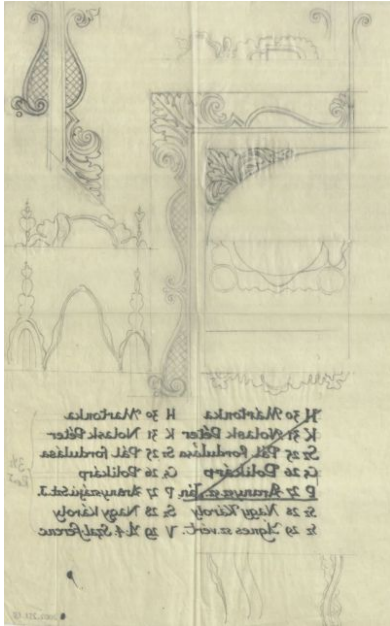 H 30 Mártonka H 30 Martonka
K 31 Nolask Péter K 31 Nolask Péter
Sz 25 Pál fordulása Sz 25 Pál fordulása
Cs 26 Polikárp Cs 26 Polikárp
P 27 Ján. P 27 J.
Sz 28 Nagy Károly Sz 28 Nagy Károly
29 sz. vért. V 29 4 Szal. Ferenc